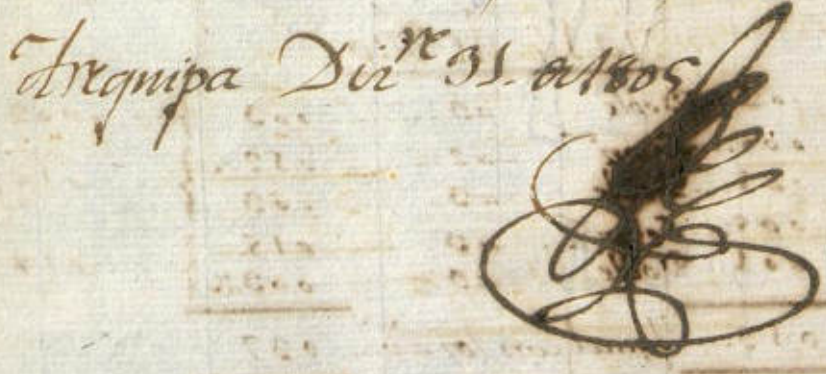 Arequipa Dizre 31. de 1805